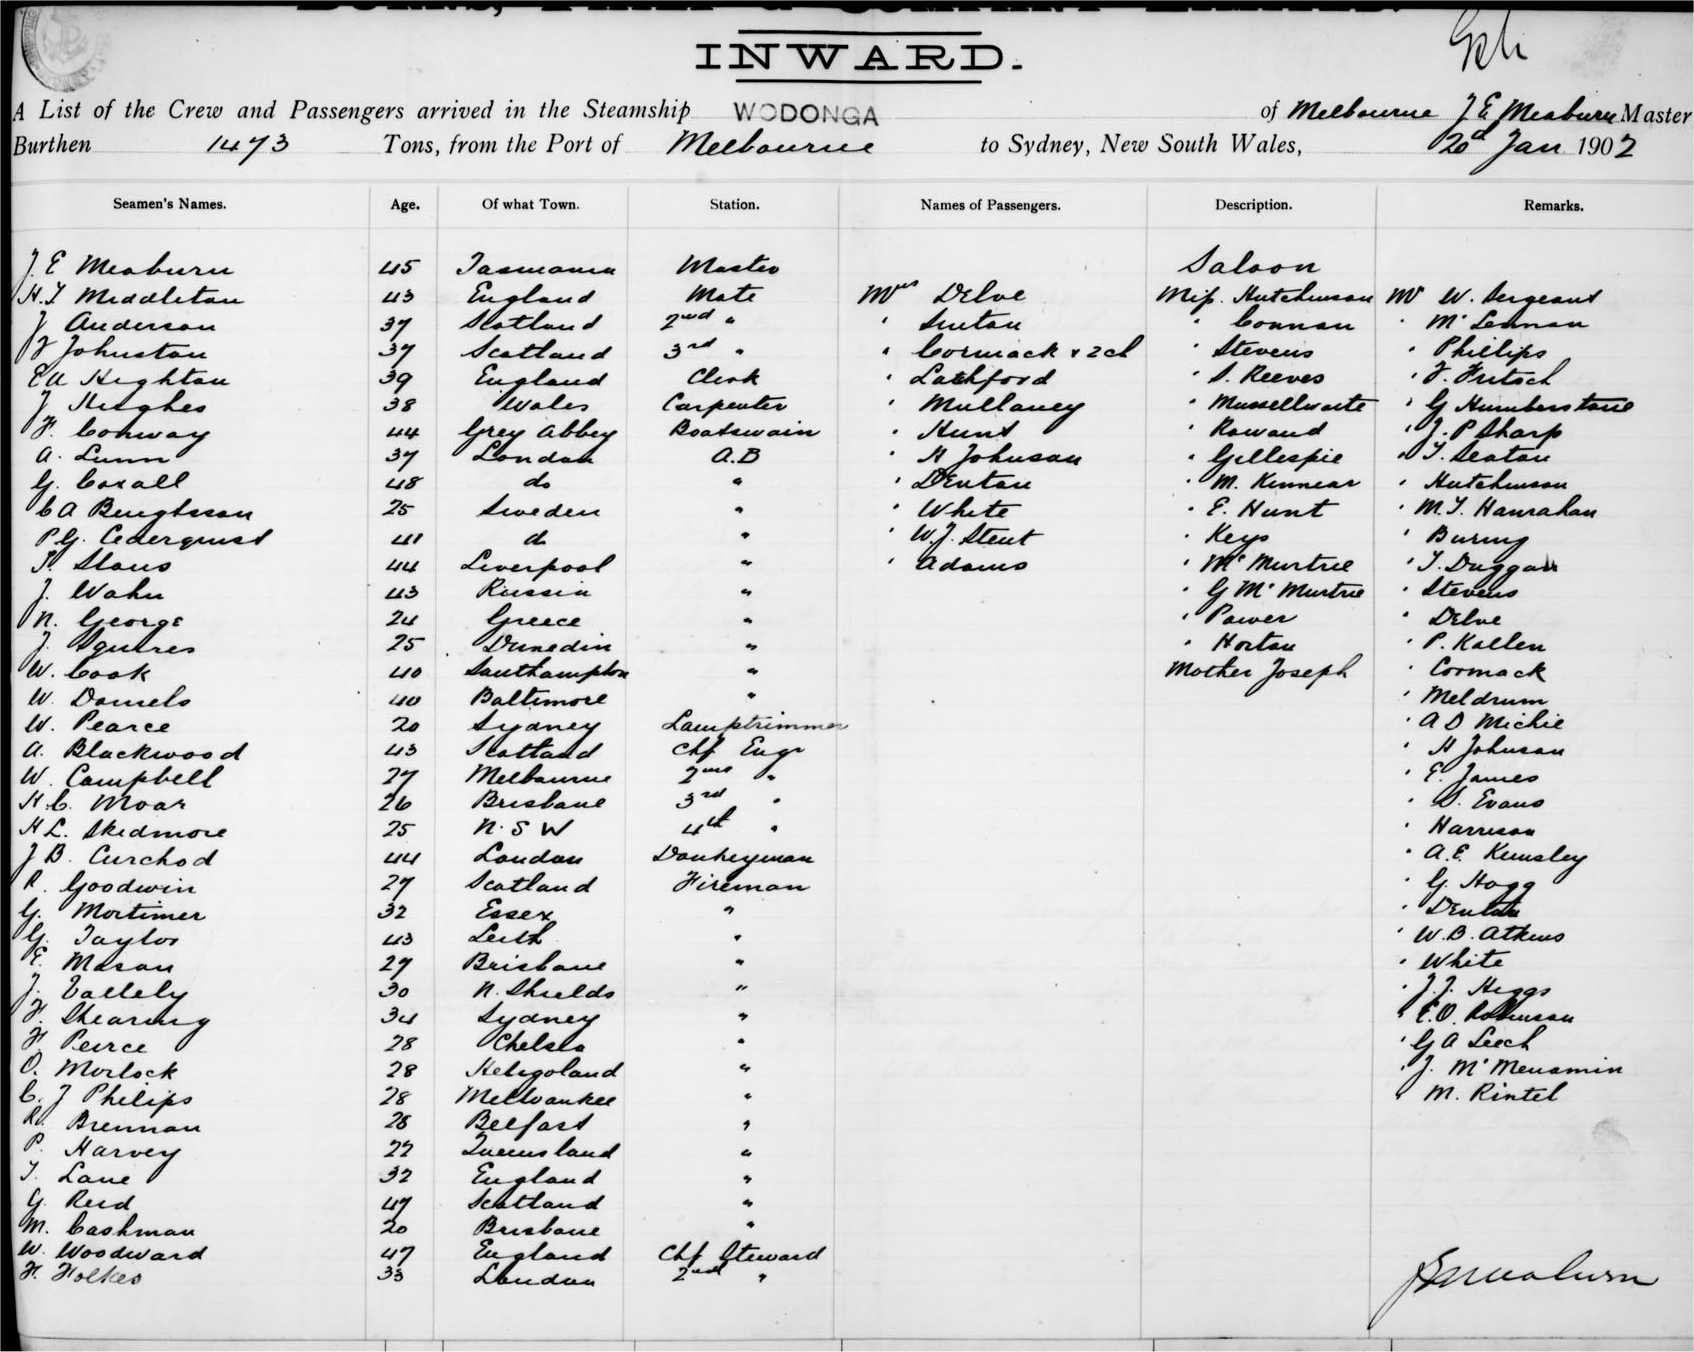 BURNS, PHILP & COMPANY LIMITED.
INWARD.
A List of the Crew and Passengers arrived in the Steamship WODONGA of Melbourne J E Meaburn Master
Burthen 1473 Tons, from the Port of Melbourne to Sydney, New South Wales, 20th Jan 1902
Seamen's Names. Age. Of what Town. Station. Names of Passengers. Description. Remarks.
J. E Meaburn 45 Tasmania Master Saloon
H. T Middleton 43 England Mate Mrs Delve Miss. Hutchinson Mr W. Sergeant
J Anderson 37 Scotland 2nd " " Suttan " Connan " Mc Lennan
J Johnston 37 Scotland 3rd " " Cormack & 2 ch " Stevens " Phillips
E A Highton 39 England Clerk " Latchford " S. Reeves " F. Fritsch
J. Hughes 38 Wales Carpenter " Mullaney " Mussellwaite " G Humberstone
F. Conway 44 Grey Abbey Boatswain " Hunt " Rowand " J. P Sharp
A. Lunn 37 London A.B " H Johnson " Gillespie " T. Seaton
G. Coxall 48 do " " Denton " M. Kinnear " Hutchinson
C A Bengtsson 25 Sweden " " White " E. Hunt " M. T. Hanrahan
P. G. Cederquist 41 do " " W. J. Stent " Keys " Buring
T. Staus 44 Liverpool " " Adams " Mc Murtrie " T. Duggan
J. Wahn 43 Russia " " G Mc Murtrie " Stevens
N. George 24 Greece " " Power " Delve
J. Squires 25 Dunedin " " Horton " P. Kallen
W. Cook 40 Southampton " Mother Joseph " Cormack
W. Daniels 40 Baltimore " " Meldrum
W. Pearce 20 Sydney Lamptrimmer " A D Michie
A. Blackwood 43 Scotland Chf Engr " H Johnson
W. Campbell 27 Melbourne 2nd " " E. James
H. C. Moar 26 Brisbane 3rd " " D. Evans
H L. Skidmore 25 N. S W 4th " " Harrison
J B. Curchod 44 London Donkeyman " A. E. Kemsley
R. Goodwin 27 Scotland Fireman " G. Hogg
G. Mortimer 32 Essex " " Denton
G. Taylor 43 Leith " " W. B. Atkins
E. Mason 27 Brisbane " " White
J. Vallely 30 N. Shields " " J. J. Higgs
F. Shearing 34 Sydney " " E. O. Robinson
F. Peirce 28 Chelsea " " G A Leech
O. Morlock 28 Heligoland " " J. Mc Menamin
C. J Philips 28 Mellwaukee " " M. Rintel
Rd. Brennan 28 Belfast "
P. Harvey 22 Queensland "
T. Lane 32 England "
G. Reid 47 Scotland "
M. Cashman 20 Brisbane "
W. Woodward 47 England Chf Steward
F. Folkes 33 London 2nd "
J E Meaburn